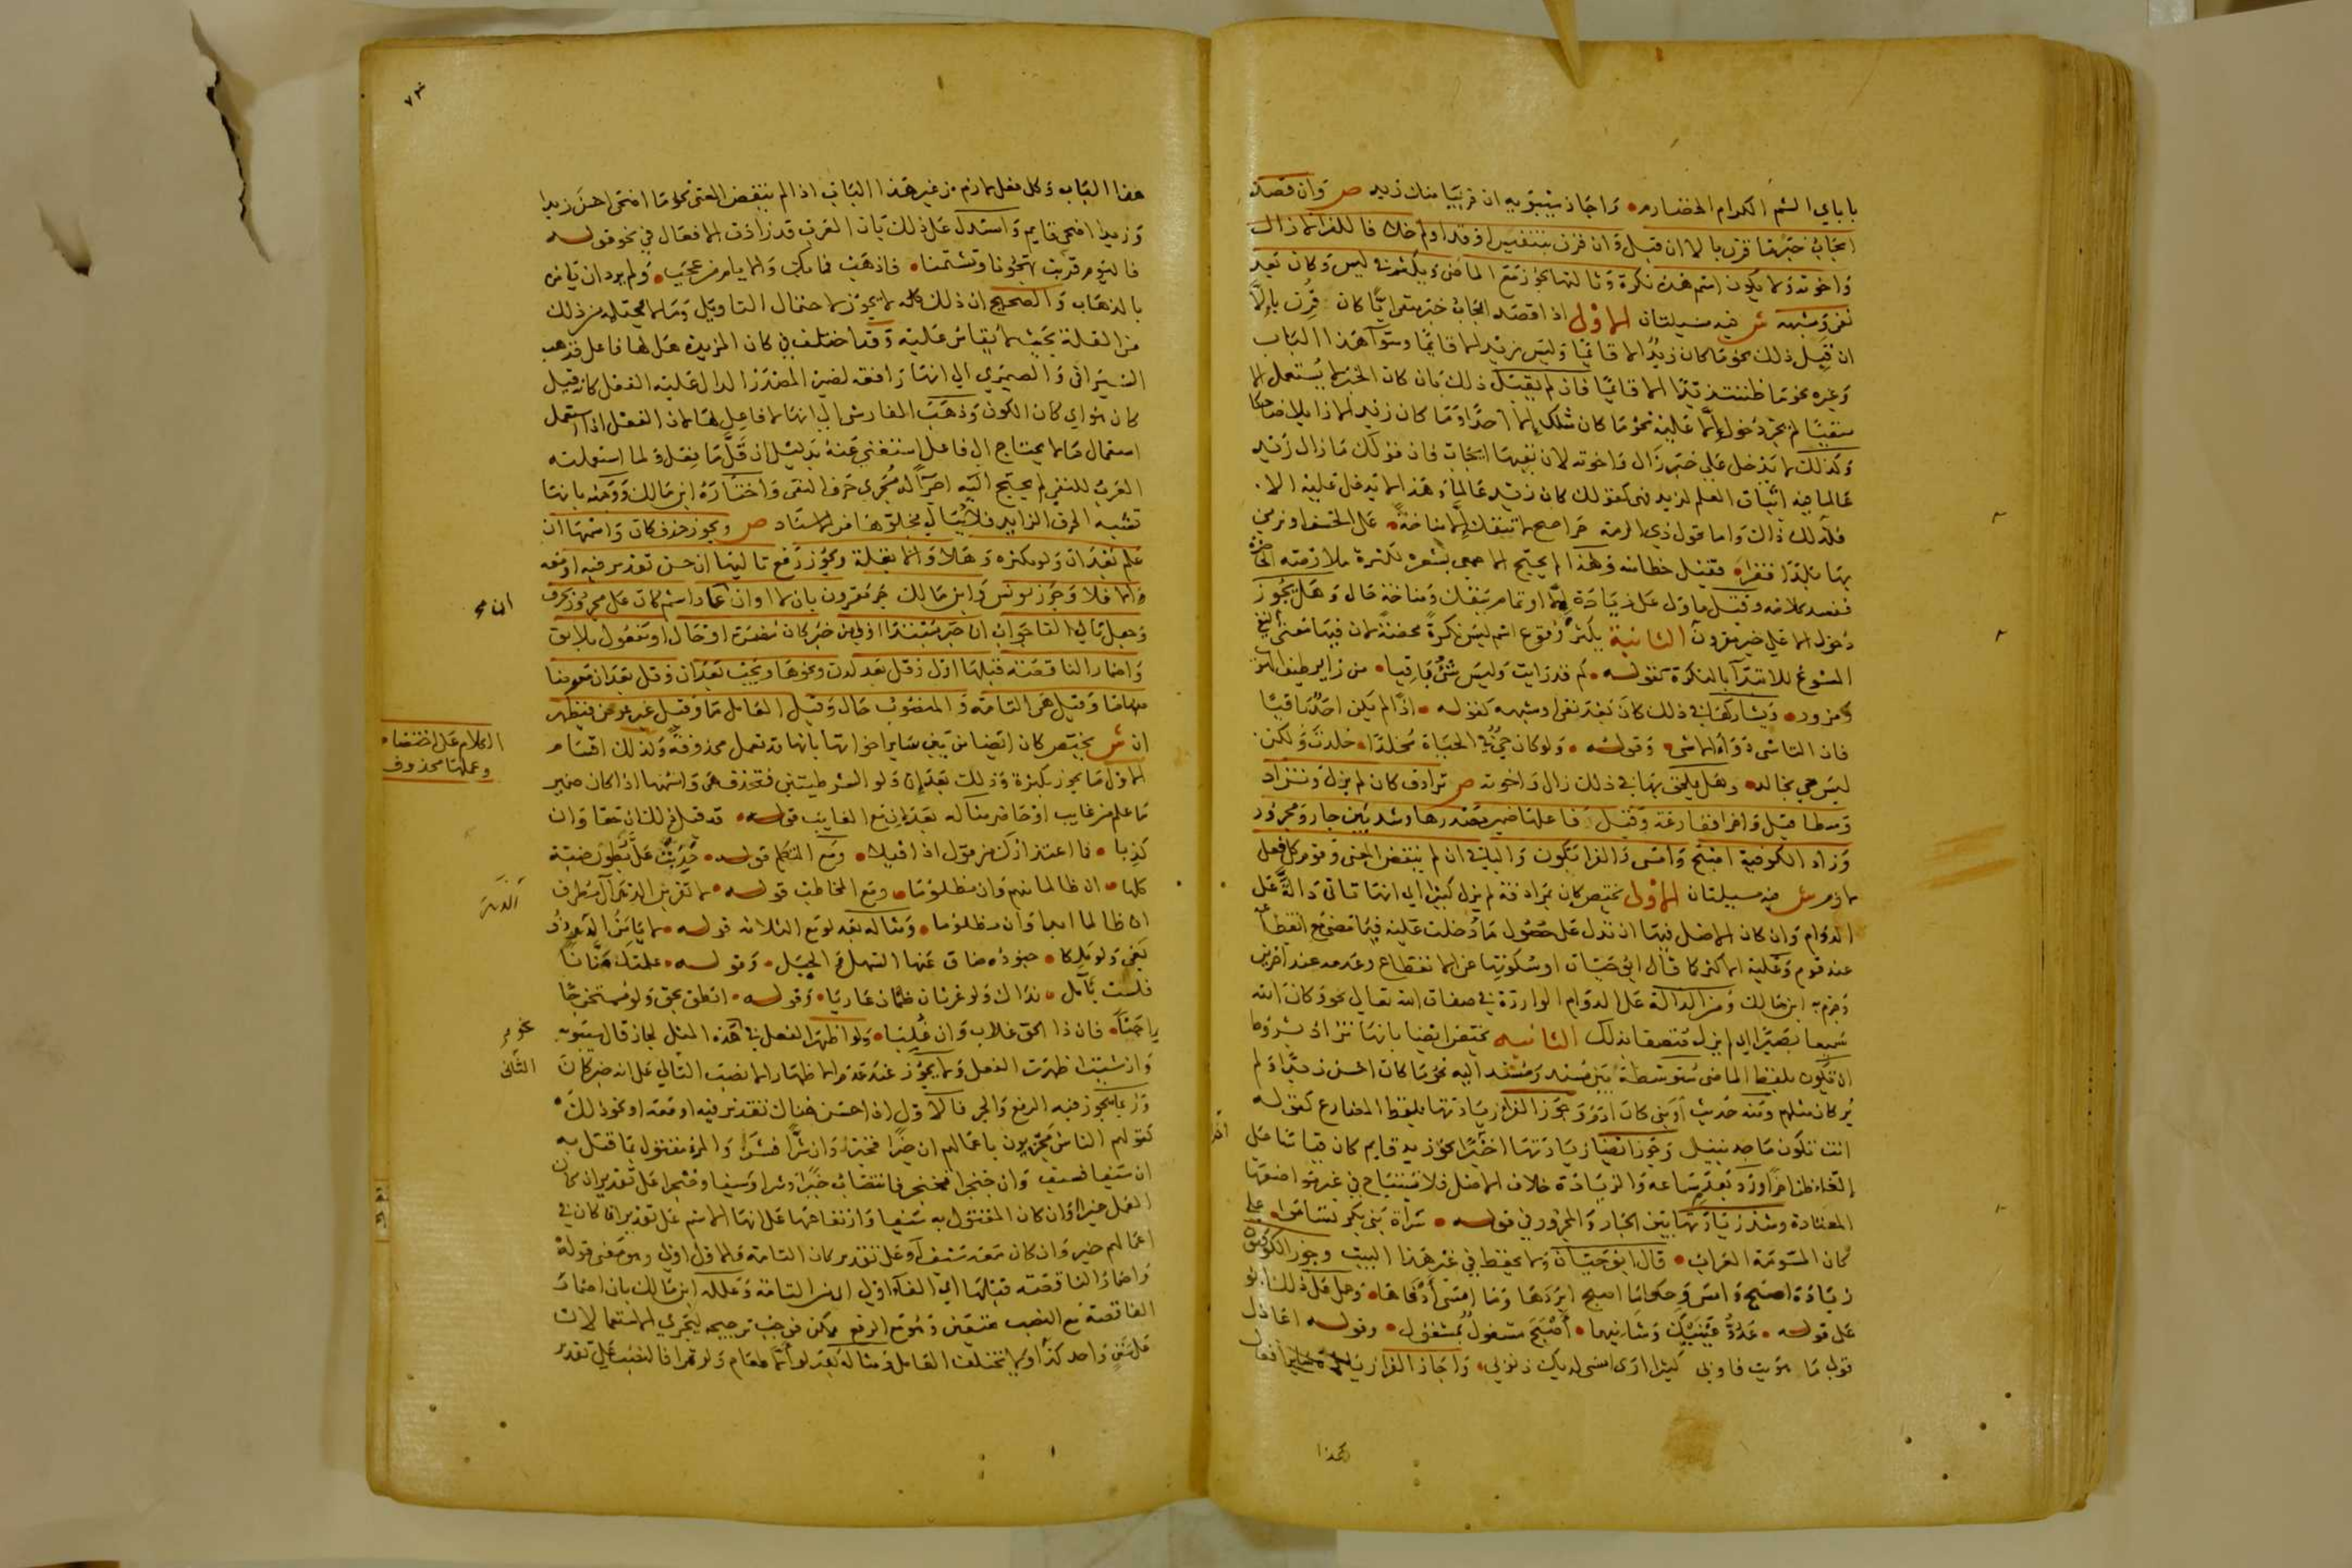 باباي الشم الكرام الخضارم واجاز سيبويه ان قريبا منك زيد ص وان قصد
ايجاب خبرها قرن بالا ان قبل وان قرن بتنفيس او قد او لم خلا فا للفرا لا زال
واخوته ولا يكون اسم هذه نكرة وتاليها يجوز مع الماضي ويكثر في ليس وكان بعد
نفي وشبهه ش فيه مسيلتان الاولى اذا قصد ايجاب خبر منفي ايا كان قرن بالا
ان قبل ذلك نحو ما كان زيد الا قائما وليس زيد الا قائما وسواء هذا الباب
وغيره نحو ما ظننت زيدا الا قائما فان لم يقبل ذلك بان كان الخبر لا يستعمل الا
منفيا لم يجز دخول الا عليه نحو ما كان مثلك الا احدا وما كان زيد الا زايلا ضاحكا
وكذلك لا يدخل على خبر زال واخوته لان نفيها ايجاب فان قولك ما زال زيد
عالما فيه اثبات العلم لزيد فهي كقولك كان زيد عالما وهذا لا تدخل عليه الا
فكذلك ذاك واما قول ذي الرمة حراجيح لا تنفك الا مناخة على الخسف او نرمي
بها بلدا قفرا فقيل خطا منه ولهذا لم يحتج الاصمعي بشعره لكثرة ملازمته الحاضرة
ففسد كلامه وقيل ماول على زيادة الا او تمام تنفك ومناخة حال وهل يجوز
دخول الا على خبر مقرون الثانية يكثر وقوع اسم ليس نكرة محضة لان فيها معنى النفي
المسوغ للابتدا بالنكرة كقوله كم قد رايت وليس شي باقيا من زاير طيف الهوى
ومزور ويشاركها في ذلك كان بعد نفي او شبهه كقوله اذا لم يكن احد باقيا
فان التاسي دواء الاسى وقوله ولو كان حي في الحياة مخلدا خلدت ولكن
ليس حي بخالد وهل يلحق بها في ذلك زال واخوته ص ترادف كان لم يزل وتزاد
وسطا قيل واخرا فقارغة وقيل فاعلها ضمير مصدرها وشذ بين جار ومجرور
وزاد الكوفية اصبح وامسى والفرا يكون والباقي ان لم ينقض المعنى وقوم كل فعل
لازم ش فيه مسيلتان الاولى تختص كان بمرادفة لم يزل كثيرا اي انها تاتي دالة على
الدوام وان كان الاصل فيها ان تدل على حصول ما دخلت عليه فيما مضى مع انقطاعه
عند قوم وعليه الاكثر كما قال ابو حيان او سكوتها عن الانقطاع وعدمه عند اخرين
وجزم به ابن مالك ومن الدالة على الدوام الواردة في صفات الله تعالى نحو وكان الله
سميعا بصيرا اي لم يزل متصفا بذلك الثانيه تختص ايضا بانها تزاد بشروط
ان تكون بلفظ الماضي متوسطة بين مسند ومسند اليه نحو ما كان احسن زيدا ولم
ير كان مثلهم ومنه حديث او نبي كان ادم وجوز الفرا زيادتها بلفظ المضارع كقوله
انت تكون ماجد نبيل وجوز ايضا زيادتها اخرا نحو زيد قايم كان قياسا على
الغاء ظن اخرا ورد بعدم سماعه والزيادة خلاف الاصل فلا تستباح في غير مواضعها
المعتادة وشذ زيادتها بين الجار والمجرور في قوله سراة بني بكر تسامى على
كان المسومة العراب قال ابو حيان ولا يحفظ في غير هذا البيت وجوز الكوفيون
زيادة اصبح وامسى وحكوا ما اصبح ابردها وما امسى ادفاها وحمل على ذلك ابو
على قوله عدو عينيك وشانيهما اصبح مشغول بمشغول وقوله اعاذل
قولي ما هويت فاوبي كثيرا ارى امسى لديك ذنوبي واجاز الفرا زيادة ساير افعال
هذا
هذا الباب وكل فعل لازم من غير هذا الباب اذا لم ينقض المعنى نحو ما اضحى احسن زيدا
وزيدا اضحى قايم واستدل على ذلك بان العرب قد زادت الافعال في نحو قوله
فاليوم قربت تهجونا وتشتمنا فاذهب فما بك والايام من عجب ولم يرد ان يامره
بالذهاب والصحيح ان ذلك كله لا يجوز لاحتمال التاويل وما لا يحتمله من ذلك
من القلة بحيث لا يقاس عليه وقد اختلف في كان المزيدة هل لها فاعل فذهب
السيرافي والصيمري الى انها رافعة لضمير المصدر الدال عليه الفعل كانه قيل
كان هو اي كان الكون وذهب الفارسي الى انها لا فاعل لها لان الفعل اذا استعمل
استعمال ما لا يحتاج الى فاعل استغنى عنه بدليل ان قلما فعل ولما استعملته
العرب للنفي لم يحتج اليه اجراء له مجرى حرف النفي واختاره ابن مالك ووجهه بانها
تشبه الحرف الزايد فلا يبالي بخلوها من الاسناد ص ويجوز حذف كان واسمها ان
علم بعد ان ولو بكثرة وهلا والا بقلة ويجوز رفع تاليها ان حسن تقدير فيه او معه
والا فلا وجوز يونس وابن مالك جر مقرون بان لا او ان عاد اسم كان على مجرور بحرف
وجعل تالي الفا جواب ان خبر مبتدا اولى من خبر كان مضمرة او حال او مفعول بلايق
واضمار الناقصة قبلها اولى وقل بعد لدن ونحوها ويجب بعد ان وقل بعد ان معوضا
منها ما وقيل هي التامة والمنصوب حال وقيل العامل ما وقيل غير عوض فيظهر
ان ش تختص كان ايضا من بين ساير اخواتها بانها قد تعمل محذوفة ولذلك اقسام
الاول ما يجوز بكثرة وذلك بعد ان ولو الشرطيتين فتحذف هي واسمها اذا كان ضمير
ما علم من غايب او حاضر مثاله بعد ان مع الغايب قوله قد قيل ذلك ان حقا وان
كذبا فما اعتذارك من قول اذا قيلا ومع المتكلم قوله حدبت علي بطون ضبة
كلها ان ظالما فيهم وان مظلوما ومع المخاطب قوله لا تقربن الدهر ال مطرف
ان ظالما ابدا وان مظلوما ومثاله بعد لو مع الثلاثة قوله لا يامن الدهر ذو
بغي ولو ملكا جنوده ضاق عنها السهل والجبل وقوله علمتك منانا
فلست بامل نداك ولو غرثان ظمآن عاريا وقوله انطق بحق ولو مستخرجا
احنا فان ذا الحق غلاب وان غلبا ولو اظهر الفعل في هذه المثل لجاز قال سيبويه
وان شيت اظهرت الفعل ولا يجوز عند عدم الاظهار الا نصب التالي على انه خبر كان
وربما يجوز فيه الرفع والجر فالاول اذا حسن هناك تقدير فيه او معه او نحو ذلك
كقولهم الناس مجزيون باعمالهم ان خيرا فخير وان شرا فشر والمرء مقتول بما قتل به
ان سيفا فسيف وان خنجرا فخنجر فانتصاب خيرا وشرا وسيفا وخنجرا على تقدير ان كان
العمل خيرا وان كان المقتول به سيفا وارتفاعها على انها الاسم على تقدير ان كان في
اعمالهم خير وان كان معه سيف او على تقدير كان التامة والاول اولى وهو معنى قوله
واضمار الناقصة قبلها اي الفاء اولى من التامة وعلله ابن مالك بان اضمار
الناقصة مع النصب متعين وهو مع الرفع ممكن فوجب ترجيحه ليجري الاستعمالات
على سنن واحد كذا ولا يختلف العامل ومثاله بعد لو الا طعام ولو تمرا فالنصب على تقدير
الكلام على اختصاص
وعملها محذوف
نحو
الثاني